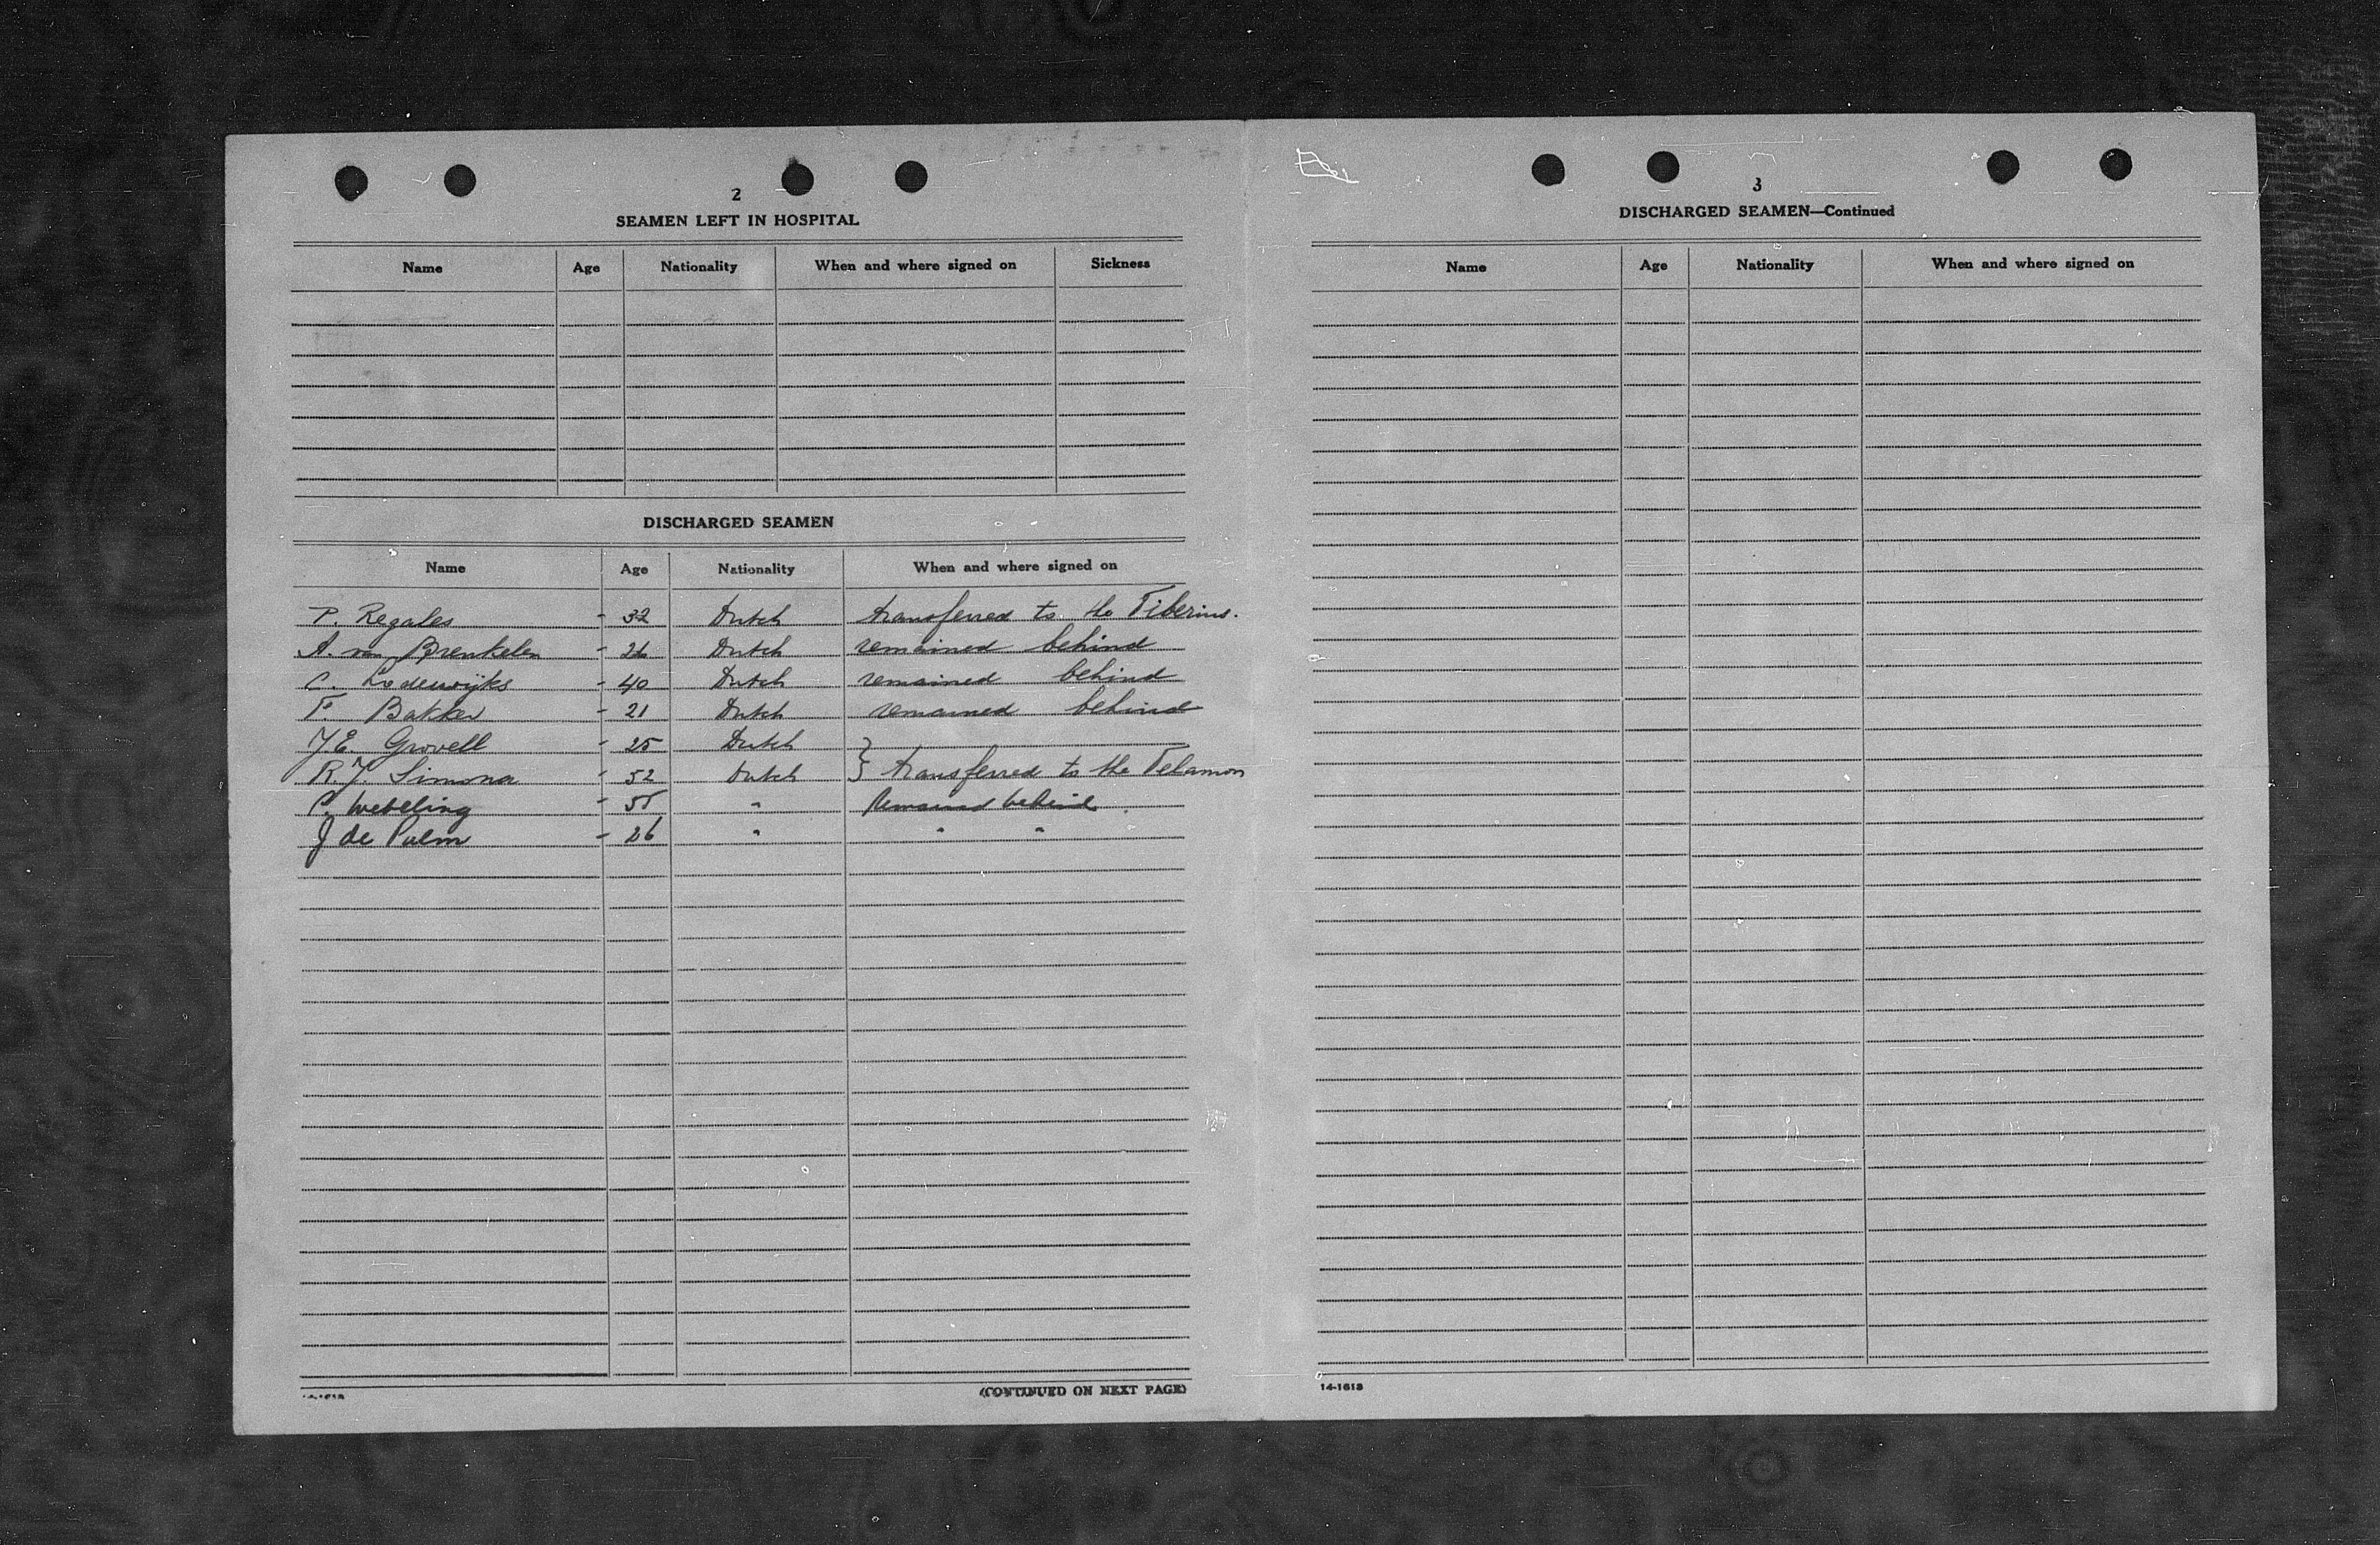 2
SEAMEN LEFT IN HOSPITAL
Name Age Nationality When and where signed on Sickness
DISCHARGED SEAMEN
Name Age Nationality When and where signed on
P. Regales - 32 Dutch transferred to the Tiberius.
A. van Brenkelen - 26 Dutch remained behind
C. Lodewijks - 40 Dutch remained behind
F. Bakker - 21 Dutch remained behind
J.E. Grovell - 25 Dutch }
R.J. Simona - 52 Dutch } transferred to the Telamon
C. Webeling - 55 " Remained behind
J de Palm - 26 " " "
(CONTINUED ON NEXT PAGE)
3
DISCHARGED SEAMEN—Continued
Name Age Nationality When and where signed on
14-1613